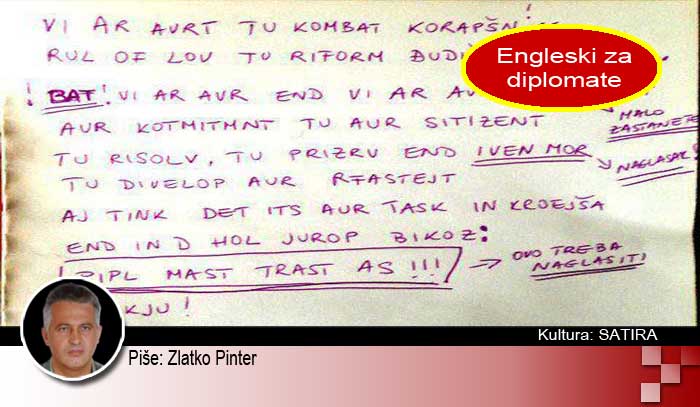 VI AR AVRT TU KOMBAT KORAPŠN!
RUL OF LOV TU RIFORM ĐUDI
Engleski za
diplomate
! BAT! VI AR AUR END VI AR AU
MALO
ZASTANETE
AUR KOTMITMNT TU AUR SITIZENT
TU RISOLV, TU PRIZRV END IVEN MOR
NAGLASAK!
TU DIVELOP AUR
AJ TINK DET ITS AUR TASK IN KROEJŠA
END IN D HOL JUROP BIKOZ:
! PIPL MAST TRAST AS !!!
OVO TREBA
NAGLASITI
KJU!
Kultura: SATIRA
Piše: Zlatko Pinter